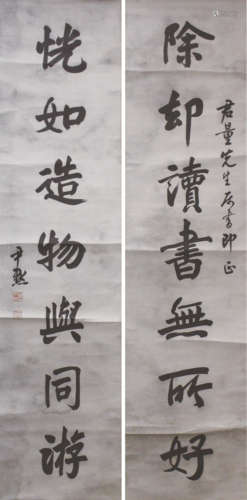 除却讀書無所好
君量先生屬書即正
恍如造物與同游
尹默